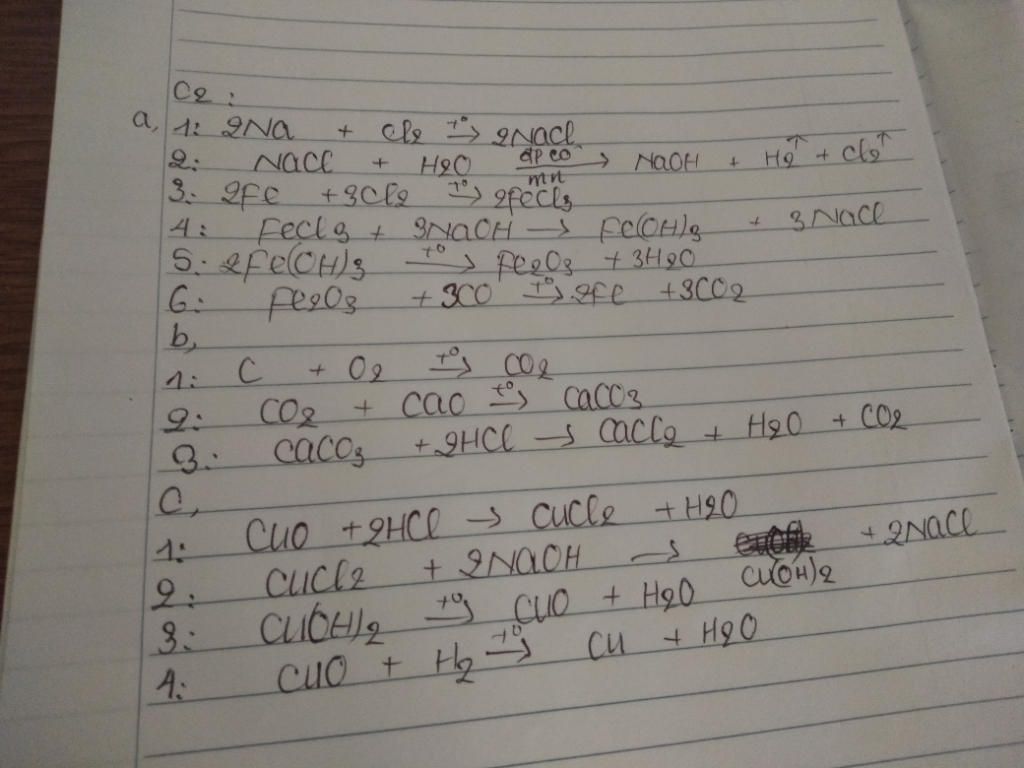 C2:
a, 1: 2Na + Cl2 t°→ 2NaCl
2: NaCl + H2O đp có→ mn NaOH + H2↑ + Cl2↑
3: 2Fe + 3Cl2 t°→ 2FeCl3
4: FeCl3 + 3NaOH → Fe(OH)3 + 3NaCl
5: 2Fe(OH)3 t°→ Fe2O3 + 3H2O
6: Fe2O3 + 3CO t°→ 2Fe + 3CO2
b,
1: C + O2 t°→ CO2
2: CO2 + CaO t°→ CaCO3
3: CaCO3 + 2HCl → CaCl2 + H2O + CO2
C,
1: CuO + 2HCl → CuCl2 + H2O
2: CuCl2 + 2NaOH → Cu(OH)2 + 2NaCl
3: Cu(OH)2 t°→ CuO + H2O
4: CuO + H2 t°→ Cu + H2O